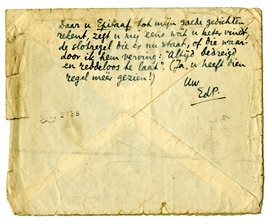 Daar u Epitaaf tot mijn goede gedichten
rekent, zegt u mij eens wat u beter vindt,
de slotregel die er nu staat, of die waar-
door ik hem verving: "Altijd bedreigd
en reddeloos te laat". (Ja, u heeft dien
regel méér gezien!)
Uw
EdP.